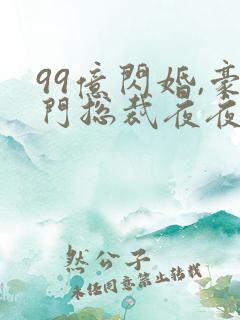 99億閃婚,豪
門總裁夜夜
然公子
未任同意禁止转载